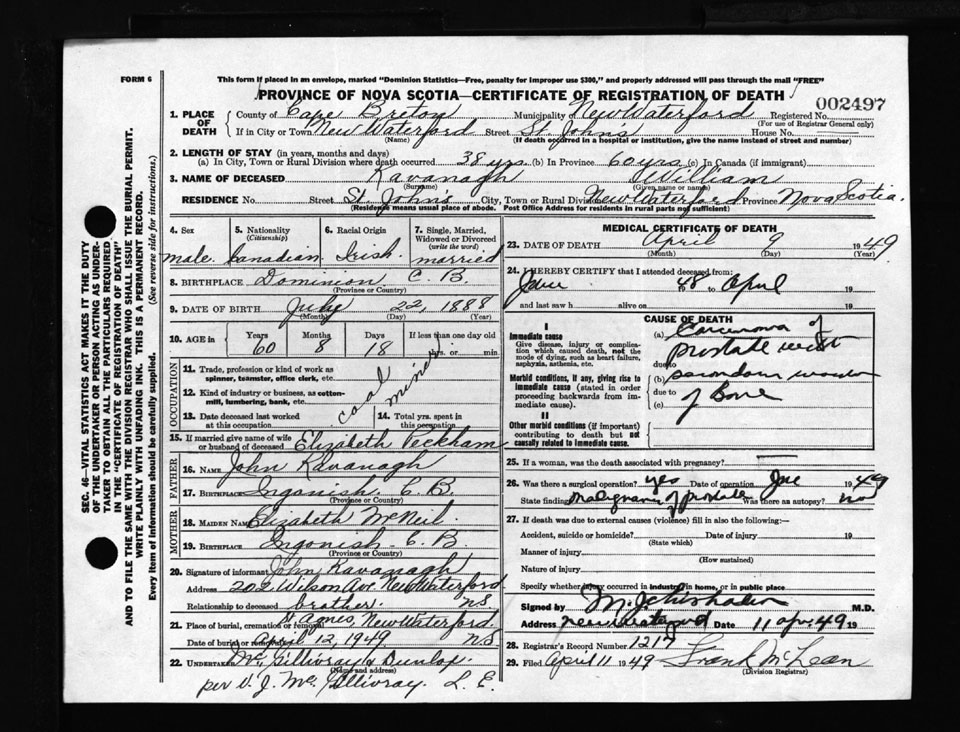 FORM 6
This form if placed in an envelope, marked "Dominion Statistics—Free, penalty for improper use $300," and properly addressed will pass through the mail "FREE"
PROVINCE OF NOVA SCOTIA—CERTIFICATE OF REGISTRATION OF DEATH
002497
1. PLACE OF DEATH County of Cape Breton Municipality of New Waterford Registered No.
(For use of Registrar General only)
If in City or Town New Waterford Street St. Johns House No.
(Name) (If death occurred in a hospital or institution, give the name instead of street and number)
2. LENGTH OF STAY (in years, months and days)
(a) In City, Town or Rural Division where death occurred 38 yrs. (b) In Province 60 yrs. (c) In Canada (if immigrant)
3. NAME OF DECEASED Kavanagh William
(Surname) (Given name or names)
RESIDENCE No. Street St. John's City, Town or Rural Division New Waterford Province Nova Scotia.
(Residence means usual place of abode. Post Office Address for residents in rural parts not sufficient)
4. Sex male.
5. Nationality (Citizenship) Canadian
6. Racial Origin Irish.
7. Single, Married, Widowed or Divorced (write the word) married
8. BIRTHPLACE Dominion C. B.
(Province or Country)
9. DATE OF BIRTH July 22, 1888
(Month) (Day) (Year)
10. AGE in Years 60 Months 8 Days 18 If less than one day
hrs. or min.
OCCUPATION
11. Trade, profession or kind of work as spinner, teamster, office clerk, etc.
12. Kind of industry or business, as cotton-mill, lumbering, bank, etc.
coal miner
13. Date deceased last worked at this occupation
14. Total yrs. spent in this occupation
15. If married give name of wife or husband of deceased Elizabeth Peckham
FATHER
16. NAME John Kavanagh
17. BIRTHPLACE Ingonish C. B.
(Province or Country)
MOTHER
18. MAIDEN NAME Elizabeth McNeil.
19. BIRTHPLACE Ingonish C. B.
(Province or Country)
20. Signature of informant John Kavanagh
Address 202 Wilson Ave. New Waterford
Relationship to deceased brother. N.S.
21. Place of burial, cremation or removal St Agnes, New Waterford.
Date of burial or removal April 12, 1949 N.S.
22. UNDERTAKER McGillivray & Dunlop.
(Name and address)
per V. J. McGillivray. L. E.
MEDICAL CERTIFICATE OF DEATH
23. DATE OF DEATH April 9 1949
(Month) (Day) (Year)
24. I HEREBY CERTIFY that I attended deceased from:
48 to April 19
and last saw h alive on 19
CAUSE OF DEATH
I
Immediate cause
Give disease, injury or complication which caused death, not the mode of dying, such as heart failure, asphyxia, asthenia, etc.
(a) Carcinoma of prostate with
due to
Morbid conditions, if any, giving rise to immediate cause (stated in order proceeding backwards from immediate cause).
(b) secondary
due to
(c) of Bone
II
Other morbid conditions (if important) contributing to death but not causally related to immediate cause.
25. If a woman, was the death associated with pregnancy?
26. Was there a surgical operation? yes Date of operation 1949
State findings of prostate Was there an autopsy? no
27. If death was due to external causes (violence) fill in also the following:—
Accident, suicide or homicide? Date of injury 19
(State which)
Manner of injury
(How sustained)
Nature of injury
Specify whether injury occurred in industry, in home, or in public place
Signed by M.D.
Address New Waterford Date 11 apr. 49 19
28. Registrar's Record Number 1217
29. Filed April 11 1949 Frank McLean
(Division Registrar)
SEC. 46—VITAL STATISTICS ACT MAKES IT THE DUTY
OF THE UNDERTAKER OR PERSON ACTING AS UNDER-
TAKER TO OBTAIN ALL THE PARTICULARS REQUIRED
IN THE "CERTIFICATE OF REGISTRATION OF DEATH"
AND TO FILE THE SAME WITH THE DIVISION REGISTRAR WHO SHALL ISSUE THE BURIAL PERMIT.
WRITE PLAINLY WITH UNFADING INK. THIS IS A PERMANENT RECORD.
Every item of information should be carefully supplied. (See reverse side for instructions.)